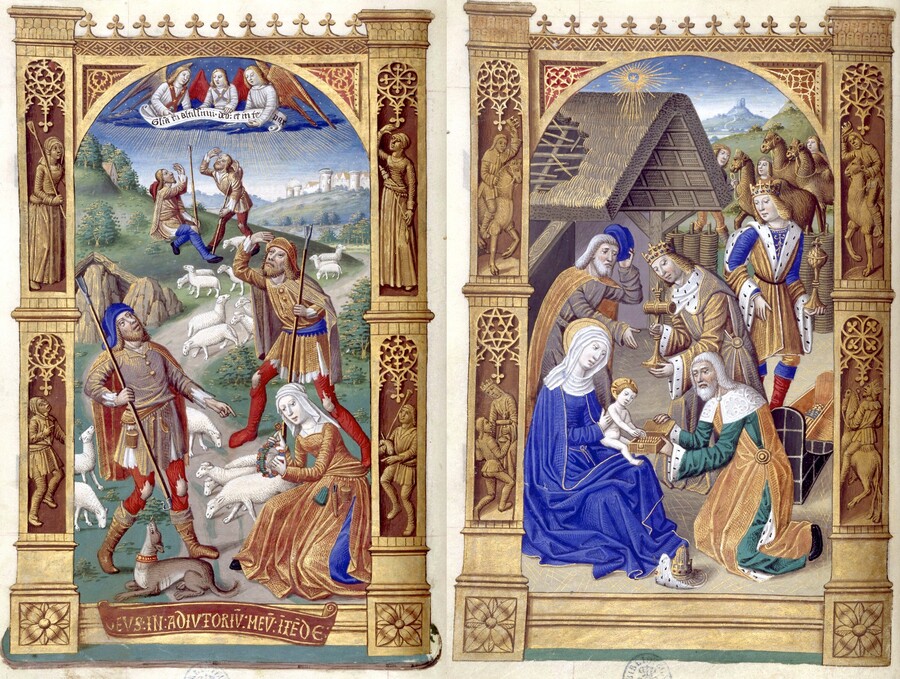 Glia in altissimis deo et in te
DEUS·IN·ADIVTORIV̄·MEV̄·ITĒDE